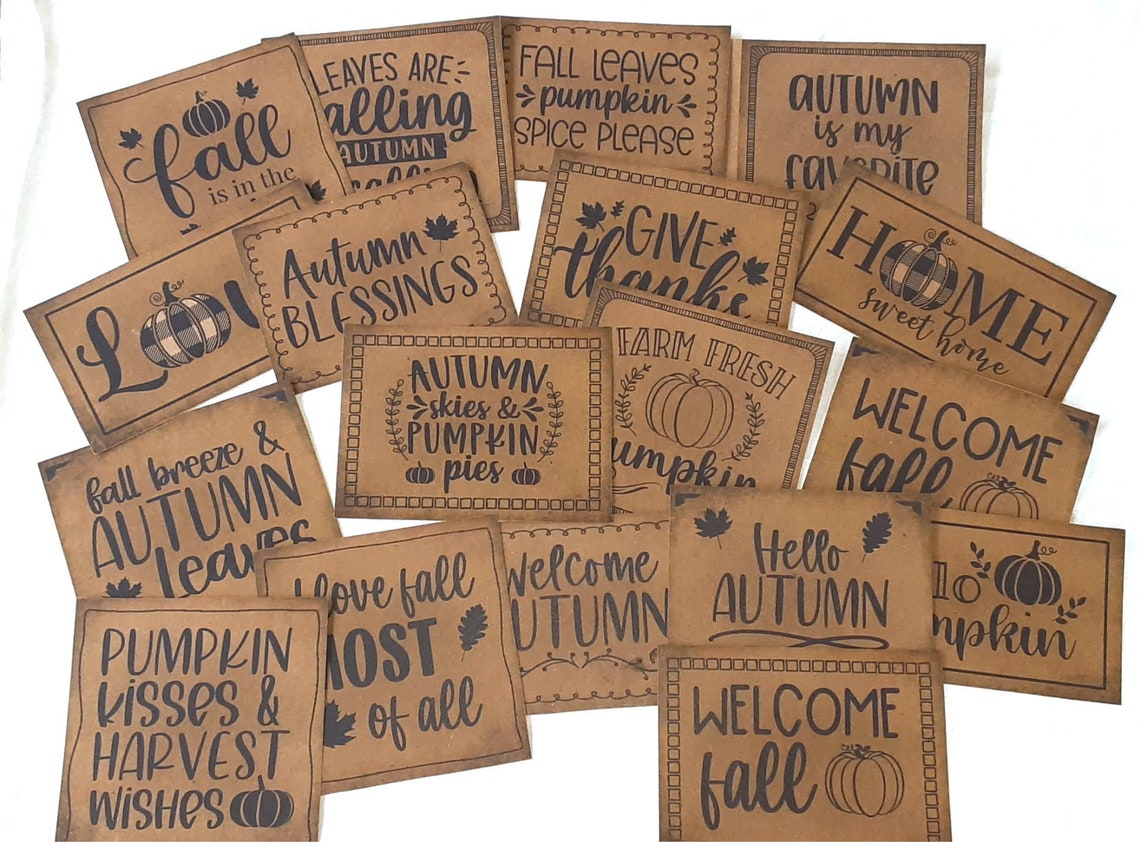 fall
is in the
LEAVES ARE
falling
AUTUMN
FALL LEAVES
pumpkin
SPICE PLEASE
AUTUMN
is my
FAVORITE
Autumn
BLESSINGS
GIVE
thanks
HOME
sweet home
AUTUMN
skies &
PUMPKIN
pies
FARM FRESH
pumpkin
WELCOME
fall
fall breeze &
AUTUMN
leaves
I love fall
MOST
of all
welcome
AUTUMN
Hello
AUTUMN
pumpkin
PUMPKIN
kisses &
HARVEST
wishes
WELCOME
fall